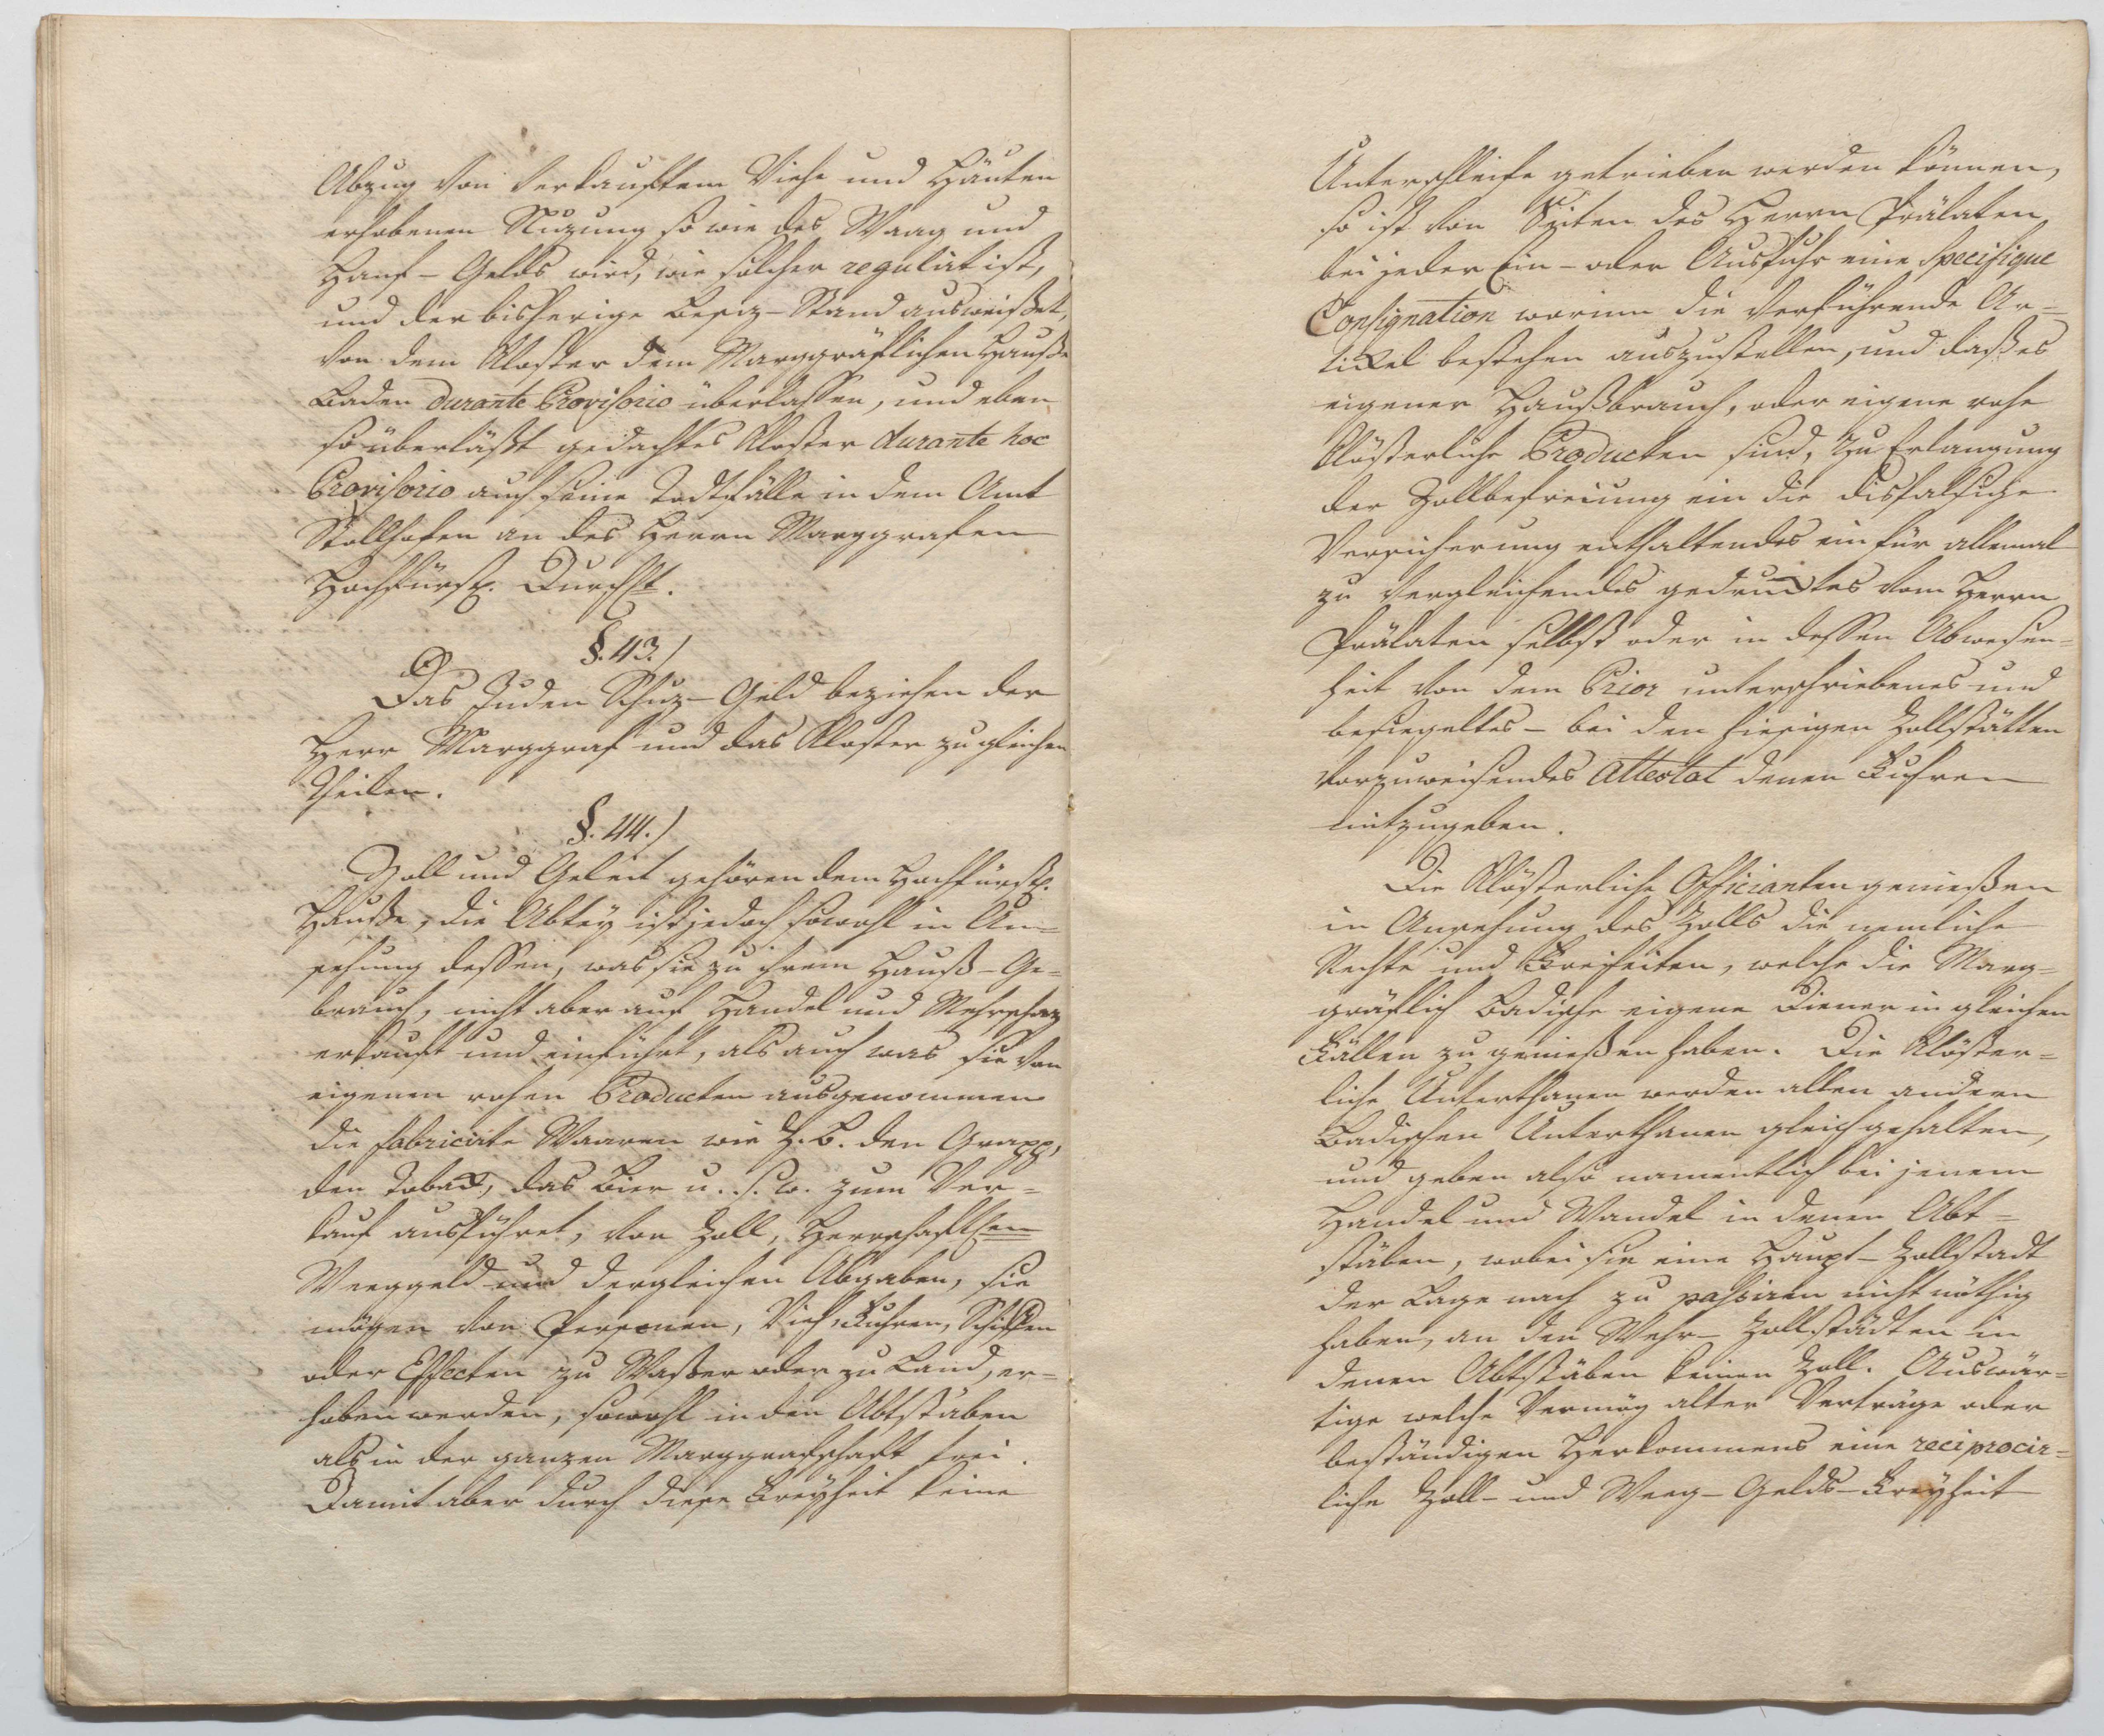 Abzug von verkauftem Viehe und Häuten
erhobenen Nuzung so wie des Waag und
Hanf - Gelds wird, wie solcher regulirt ist,
und der bisherige Besiz - Stand ausweißet,
von dem Kloster dem Marggräflichen Hauße
Baden durante Provisorio überlassen, und eben
so überläßt gedachtes Kloster durante hoc
Provisorio auch seine Todtfälle in dem Amt
Stollhofen an des Herrn Marggrafen
Hochfürstl. Durchlt.
§. 43.)
Das Juden Schuz - Geld beziehen der
Herr Marggraf und das Kloster zu gleichen
Theilen.
§. 44.)
Zoll und Geleit gehören dem Hochfürstl.
Hauße, die Abtey ist jedoch sowohl in An=
sehung dessen, was sie zu ihrem Hauß - Ge=
brauch, nicht aber auf Handel und Mehrschaz
erkauft und einführt, als auch was sie von
eigenen rohen Producten ausgenommen
die fabricirte Waaren wie z. B. den Grapp,
den Toback, das Bier u. s. w. zum Ver=
kauf ausführet, von Zoll, Herrschaftlichen
Weeggeld und dergleichen Abgaben, sie
mögen von Personen, Vieh, Fuhren, Schiffen
oder Effecten zu Wasser oder zu Land, er=
hoben werden, sowohl in den Abtstäben
als in der ganzen Marggrafschaft frei.
Damit aber durch diese Freyheit keine
Unterschleife getrieben werden können,
so ist von Seiten des Herrn Prälaten
bei jeder Ein - oder Ausfuhr eine Specifique
Consignation worinn die verführende Ar=
tickel bestehen auszustellen, und daß es
eigener Haußbrauch, oder eigene rohe
Klösterliche Producten sind, zu Erlangung
der Zollbefreiung ein die disfalsige
Versicherung enthaltendes ein für allemal
zu vergleichendes gedrucktes vom Herrn
Prälaten selbst oder in dessen Abwesen=
heit von dem Prior unterschriebenes und
besiegeltes - bei den hiesigen Zollstätten
vorzuweisendes Attestat denen Fuhren
mitzugeben.
Die Klösterliche Officianten genießen
in Ansehung des Zolls die nemliche
Rechte und Freiheiten, welche die Marg=
gräflich Badische eigene Diener in gleichen
Fällen zu genießen haben. Die Klöster=
liche Unterthanen werden allen andern
Badischen Unterthanen gleich gehalten,
und geben also namentlich bei jenem
Handel und Wandel in denen Abt=
stäben, wobei sie eine Haupt - Zollstadt
der Lage nach zu passiren nicht nöthig
haben, an den Wehr - Zollstädten in
denen Abtstäben keinen Zoll. Auswär=
tige welche Vermög alter Verträge oder
beständigen Herkommens eine reciprocir=
liche Zoll - und Weeg - Gelds - Freyheit